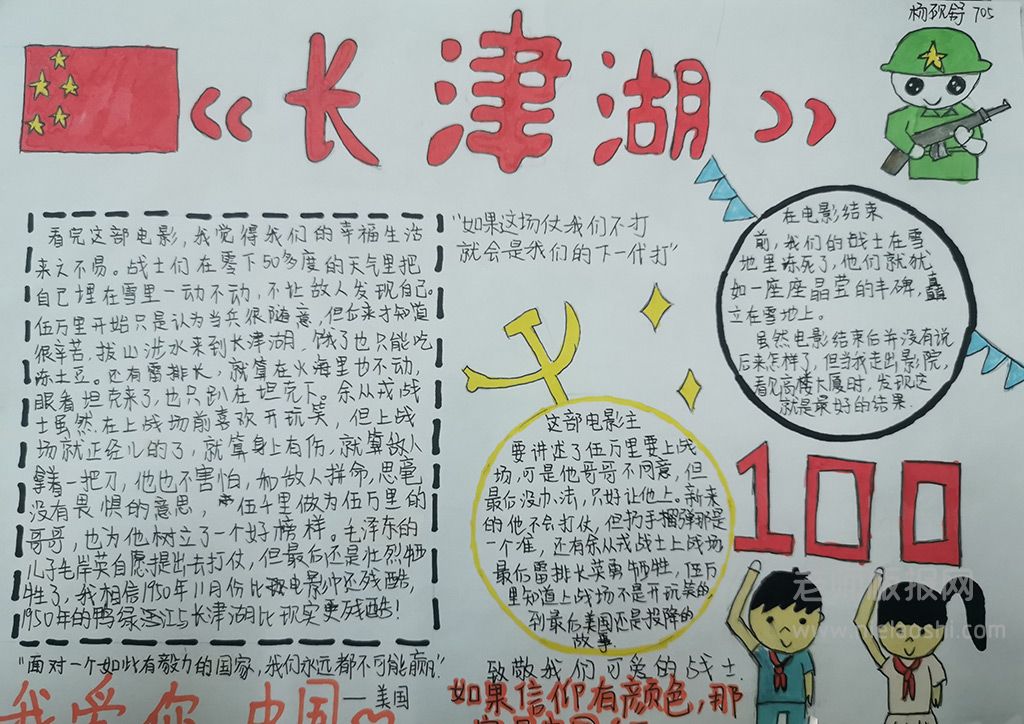 杨砚舒 705
《长津湖》
看完这部电影,我觉得我们的幸福生活
来之不易。战士们在零下50多度的天气里把
自己埋在雪里一动不动,不让敌人发现自己。
伍万里开始只是认为当兵很随意,但后来才知道
很辛苦,拔山涉水来到长津湖,饿了也只能吃
冻土豆。还有雷排长,就算在火海里也不动,
眼看坦克来了,也只趴在坦克下。余从戎战
士虽然在上战场前喜欢开玩笑,但上战
场就正经儿的了,就算身上有伤,就算敌人
拿着一把刀,他也不害怕,和敌人拼命,思毫
没有畏惧的意思,伍千里做为伍万里的
哥哥,也为他树立了一个好榜样。毛泽东的
儿子毛岸英自愿提出去打仗,但最后还是壮烈牺
牲了,我相信1950年11月份比电影中还残酷,
1950年的鸭绿江与长津湖比现实更残酷!
"面对一个如此有毅力的国家,我们永远都不可能赢"
——美国
我爱你 中国
"如果这场仗我们不打
就会是我们的下一代打"
这部电影主
要讲述了伍万里要上战
场,可是他哥哥不同意,但
最后没办法,只好让他上。新来
的他不会打仗,但扔手榴弹那是
一个准,还有余从戎战士上战场
最后雷排长英勇牺牲,伍万
里知道上战场不是开玩笑的
到最后美国还是投降的
故事
致敬我们可爱的战士
如果信仰有颜色,那
在电影结束
前,我们的战士在雪
地里冻死了,他们就犹
如一座座晶莹的丰碑,矗
立在雪地上。
虽然电影结束后并没有说
后来怎样了,但当我走出影院,
看见高楼大厦时,发现这
就是最好的结果.
100
老师板报网